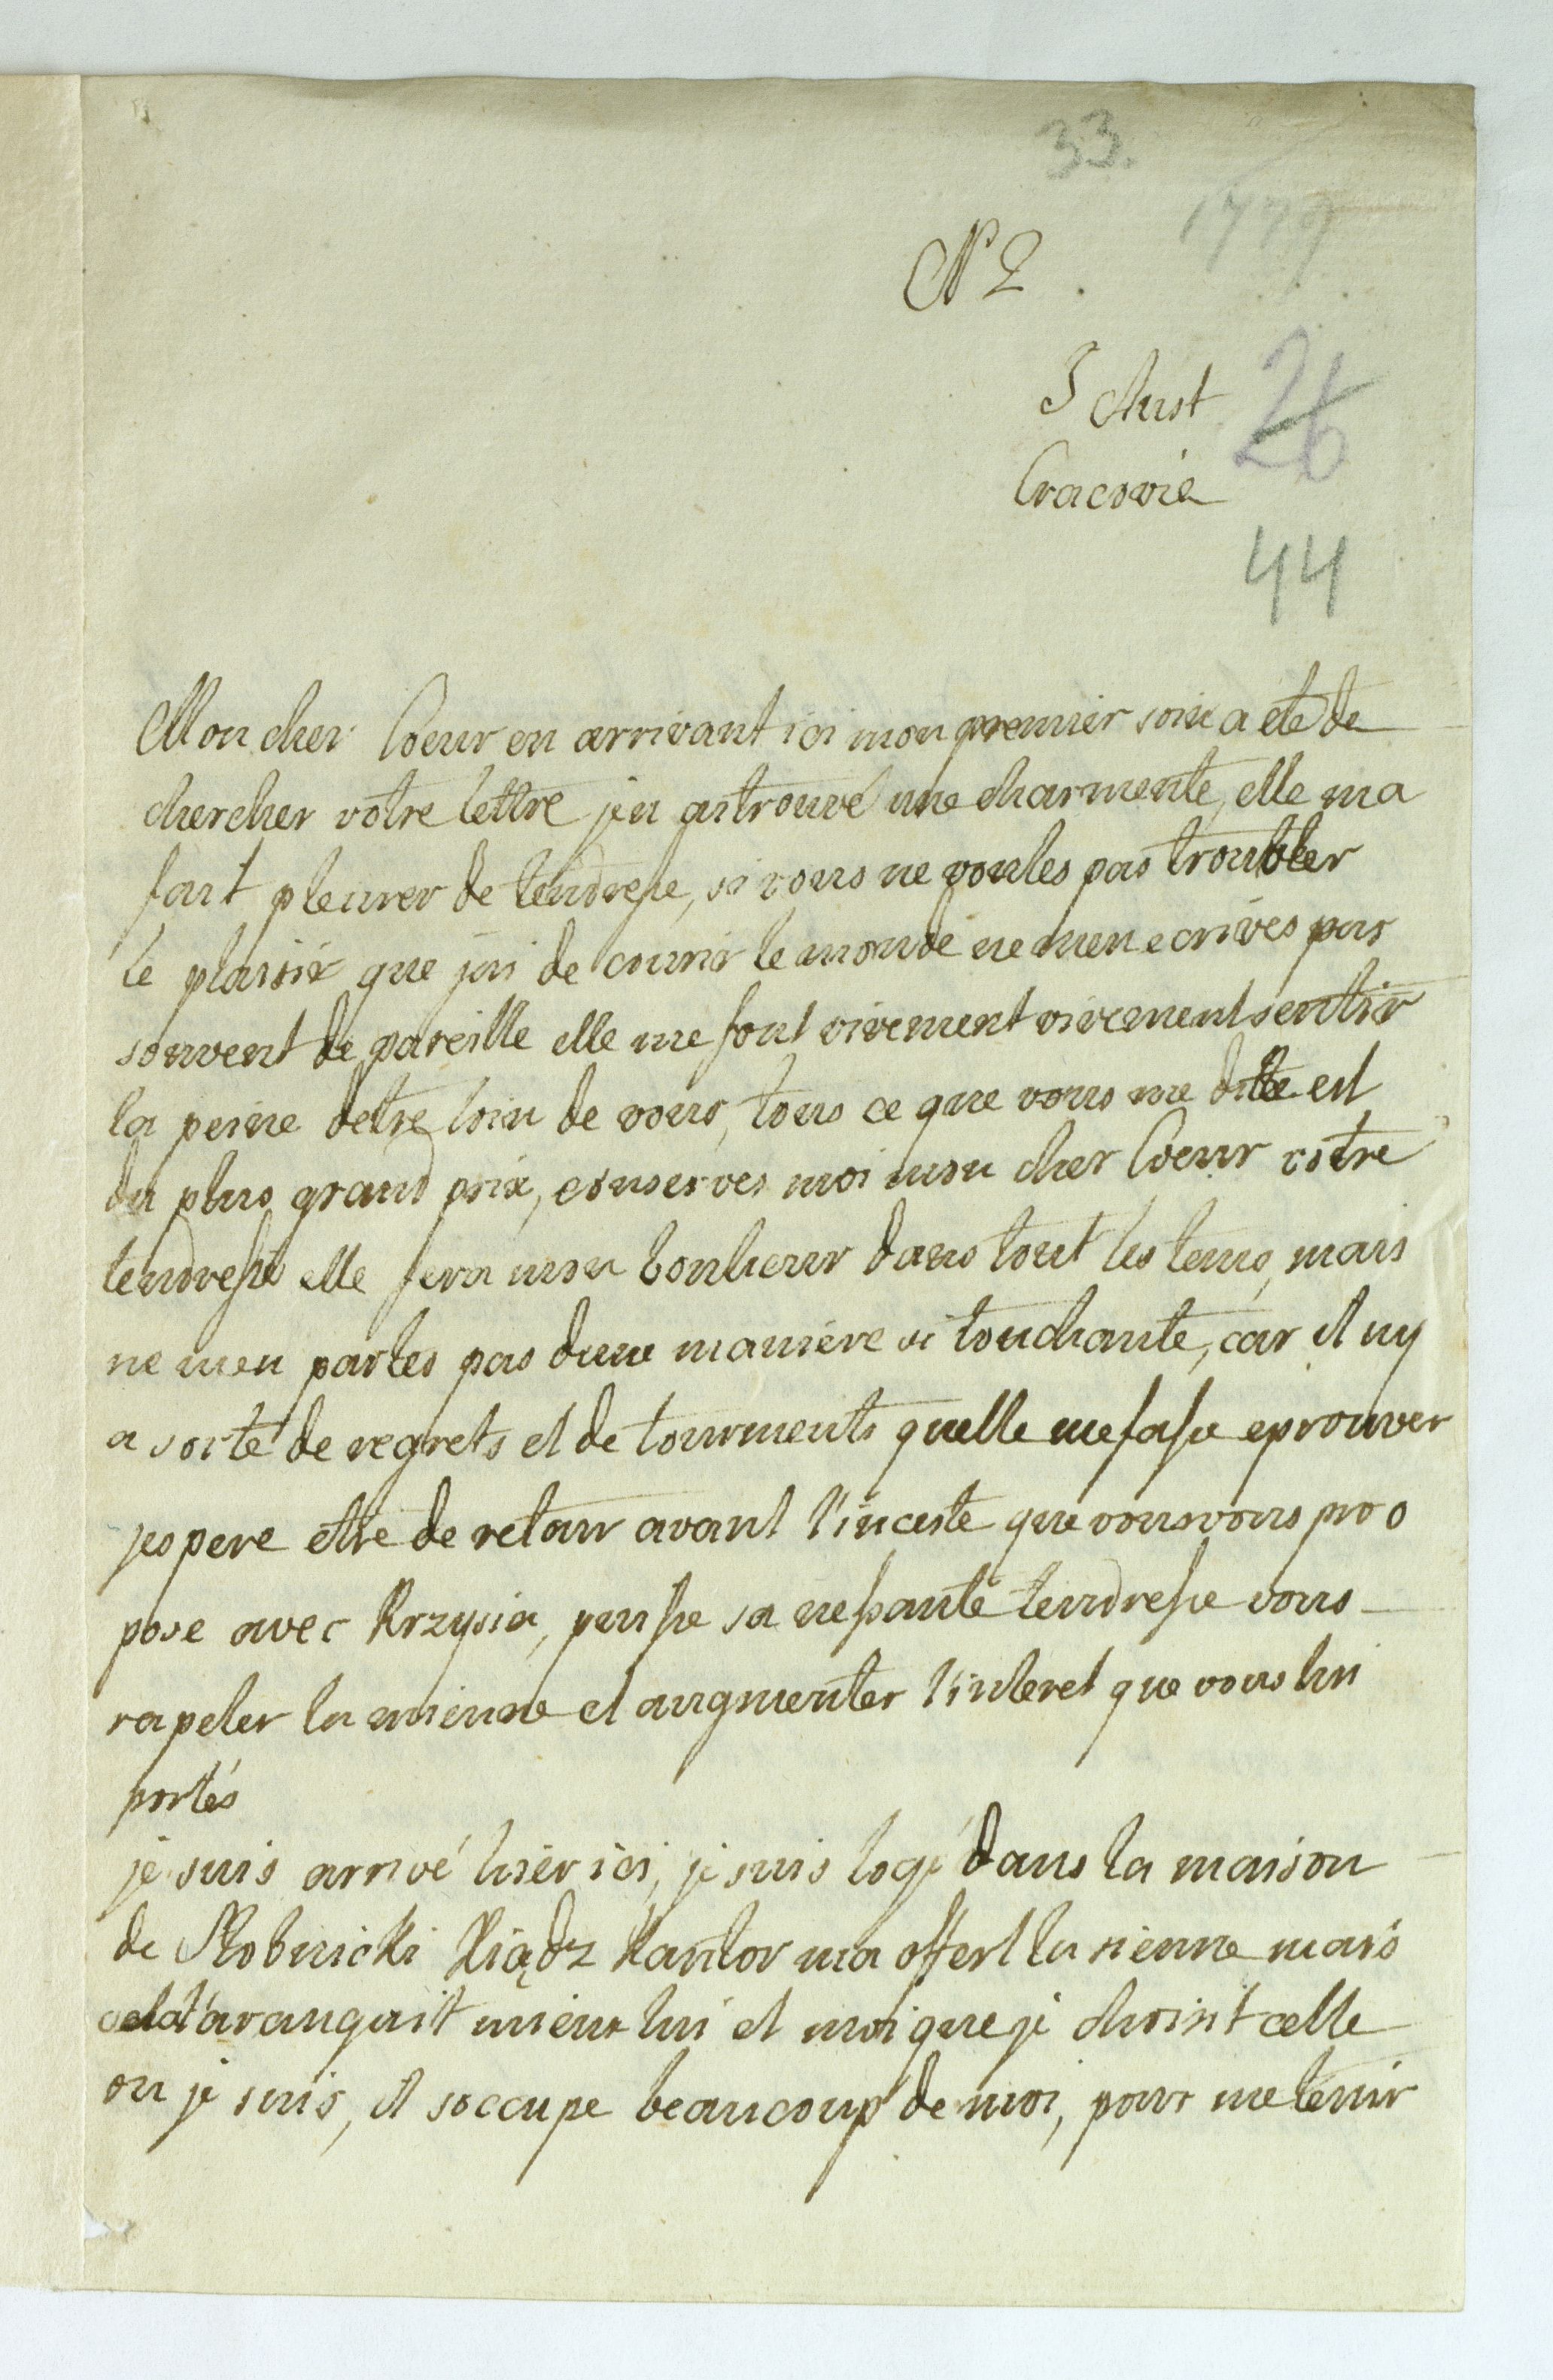 33.
1779
N 2.
3 Aust
26
Cracovie
44
Mon cher Coeur en arrivant ici mon premier soin a eté de
chercher votre lettre j'en ai trouvé une charmente, elle ma
fait pleurer de tendresse, si vous ne voules pas troubler
le plaisir que jai de courir le monde ne men ecrivés pas
souvent de pareille elle me font vivement vivement sentir
la peine detre loin de vous, tous ce que vous me dite est
du plus grand prix, conserves moi mon cher Coeur votre
tendresse elle fera mon bonheur dans tout les tems, mais
ne men parles pas dune maniere si touchante, car il ny
a sorte de regrets et de tourments quelle me fasse eprouver
jespere etre de retour avant l'inceste que vous vous pro
pose avec Krzysia, puisse sa nessante tendresse vous
rapeler la mienne et augmenter l'interet que vous lui
portés
je suis arrivé hier ici, je suis logé dans la maison
de Kiądz Kantor ma offert la sienne mais
cela arangait mieux lui et moi que je choisit celle
ou je suis, il soccupe beaucoup de moi, pour me tenir